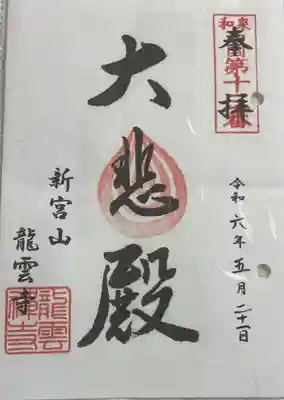 奉拝
大悲殿
令和六年五月二十一日
新宮山
龍雲寺
龍雲
禅寺